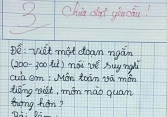 3 Chưa đạt yêu cầu!
Đề: viết một đoạn ngắn
(200-300 từ) nói về suy nghĩ
của em: Môn toán và môn
tiếng việt, môn nào quan
trọng hơn?
Bài làm